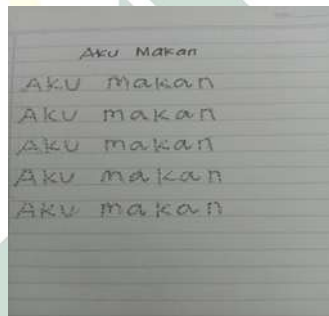 Aku Makan
Aku makan
Aku makan
Aku makan
Aku makan
Aku makan